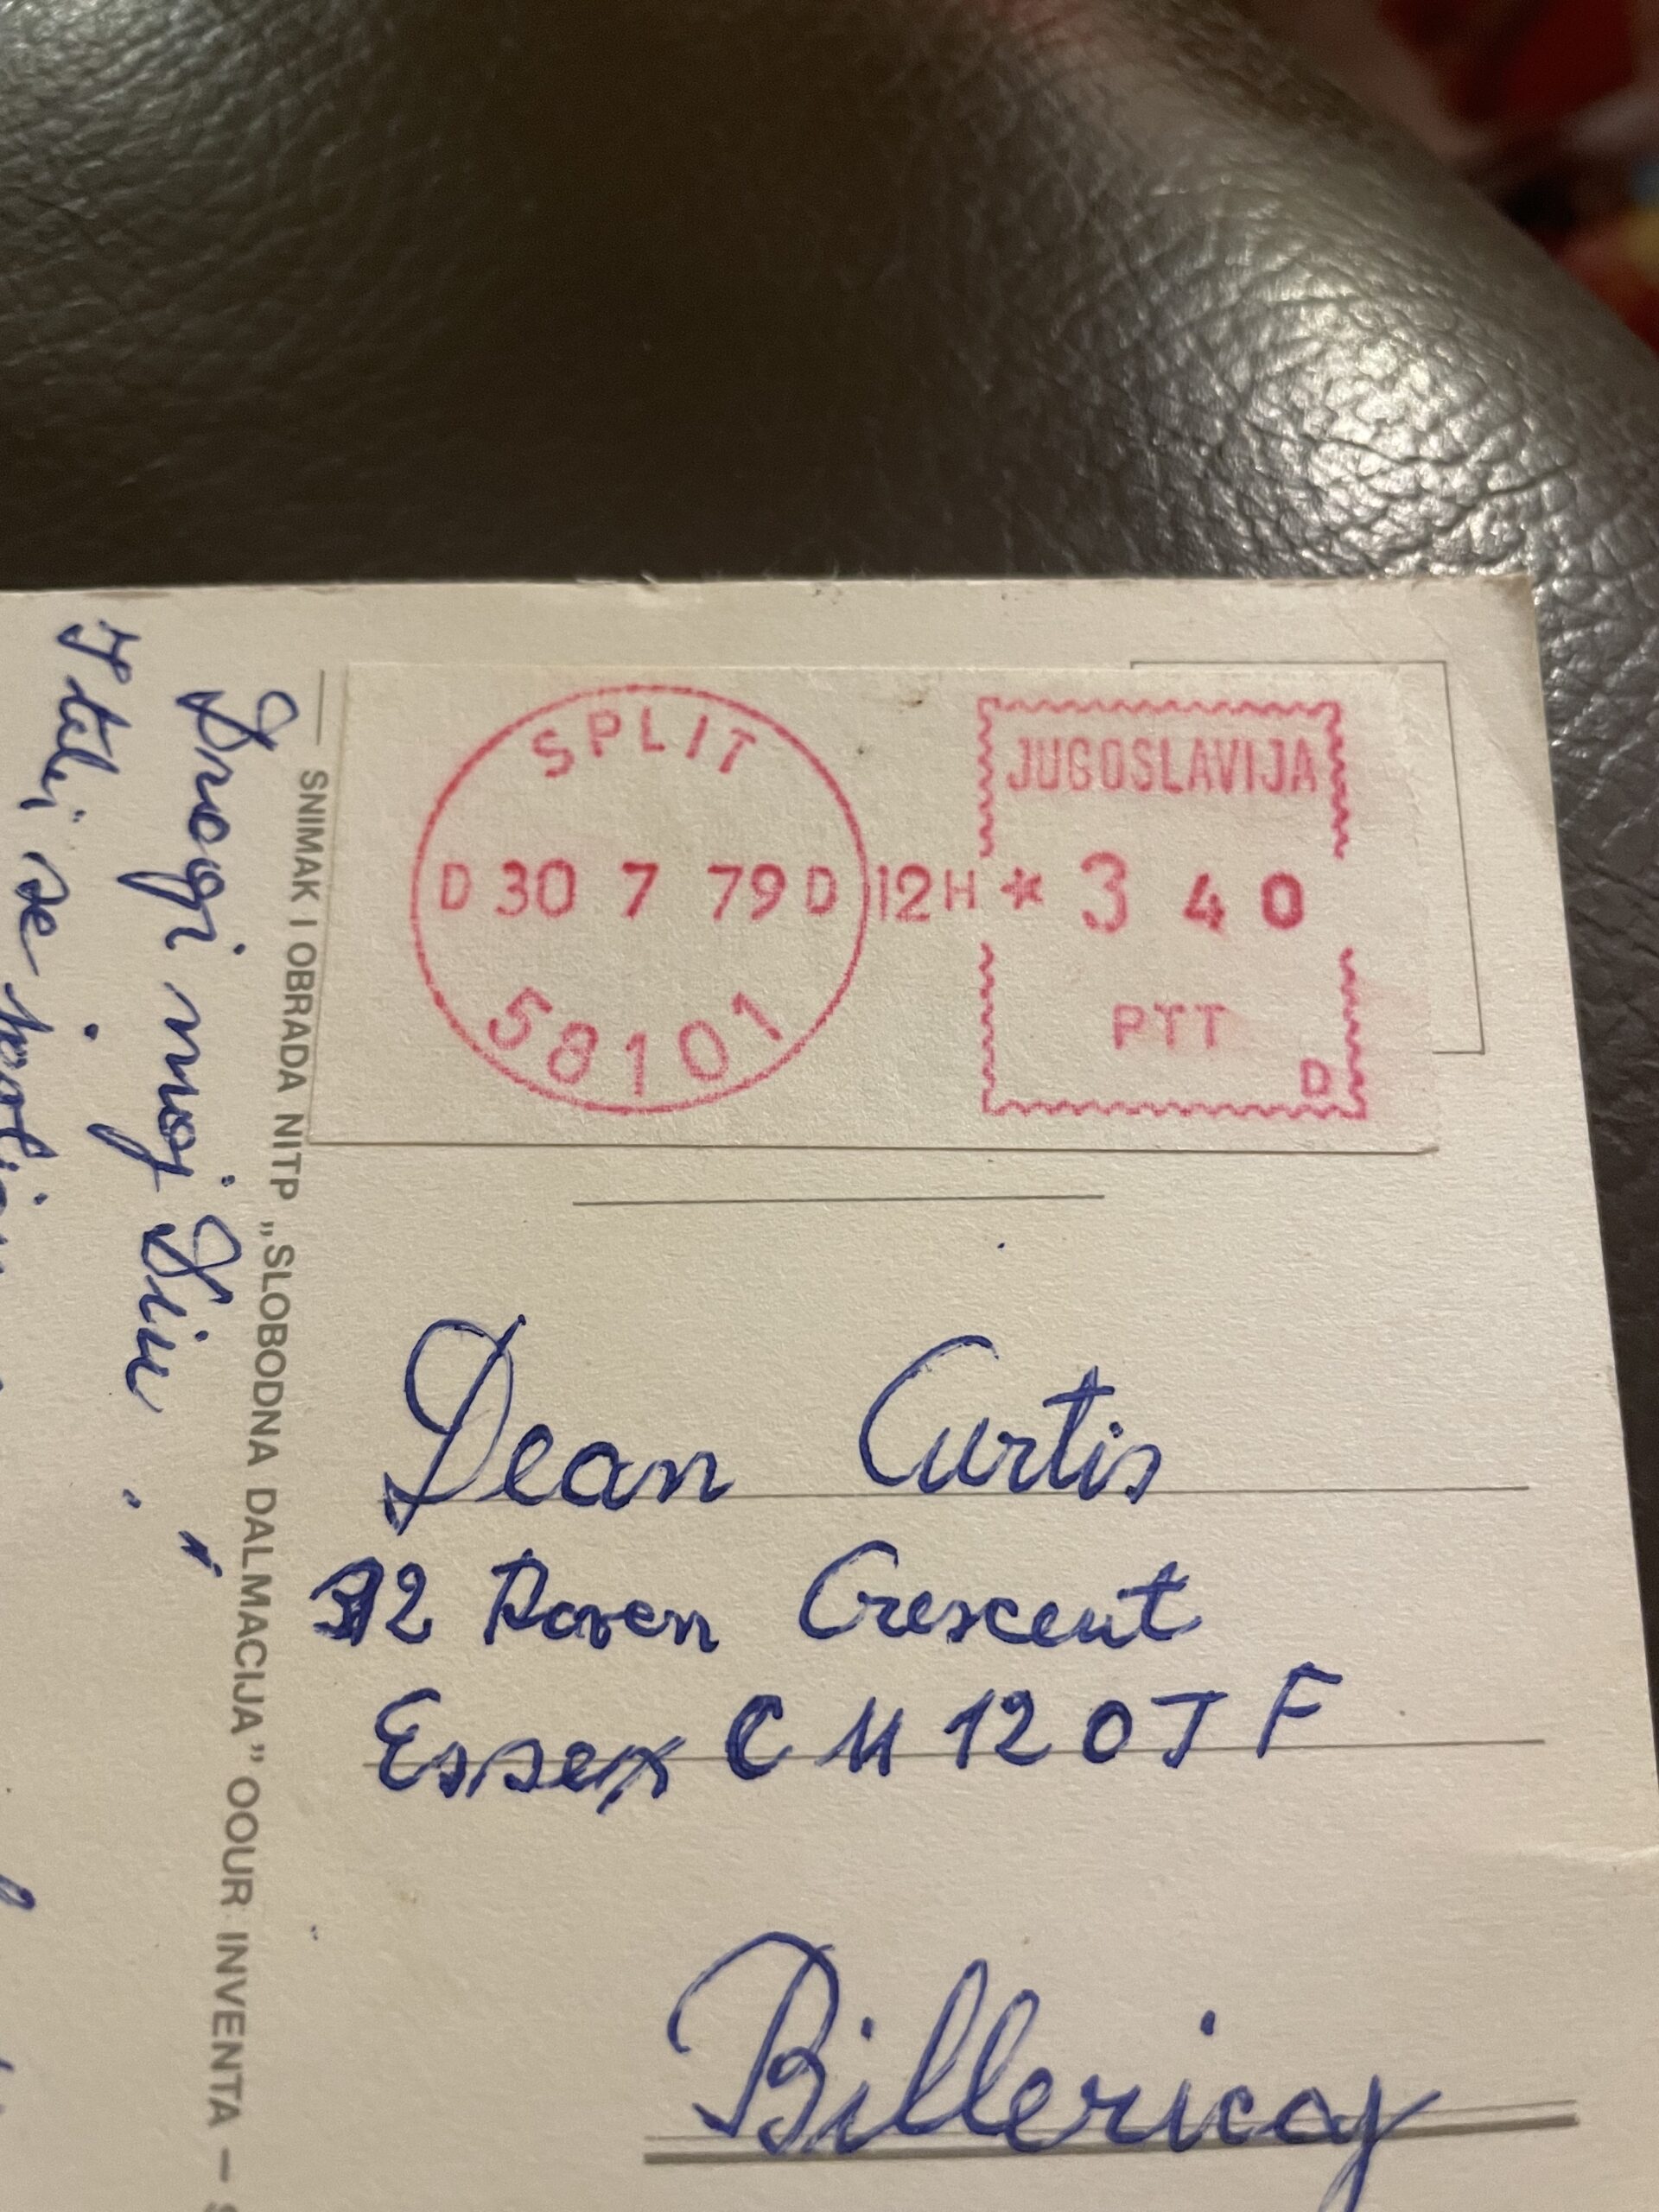 SPLIT
D 30 7 79 D 12H * 3 40
58101
JUGOSLAVIJA
PTT
D
Dean Curtis
Raven Crescent
Essex CM12 0TF
Billericay
— SNIMAK I OBRADA NITP „SLOBODNA DALMACIJA” OOUR INVENTA –
Dragi moj
se